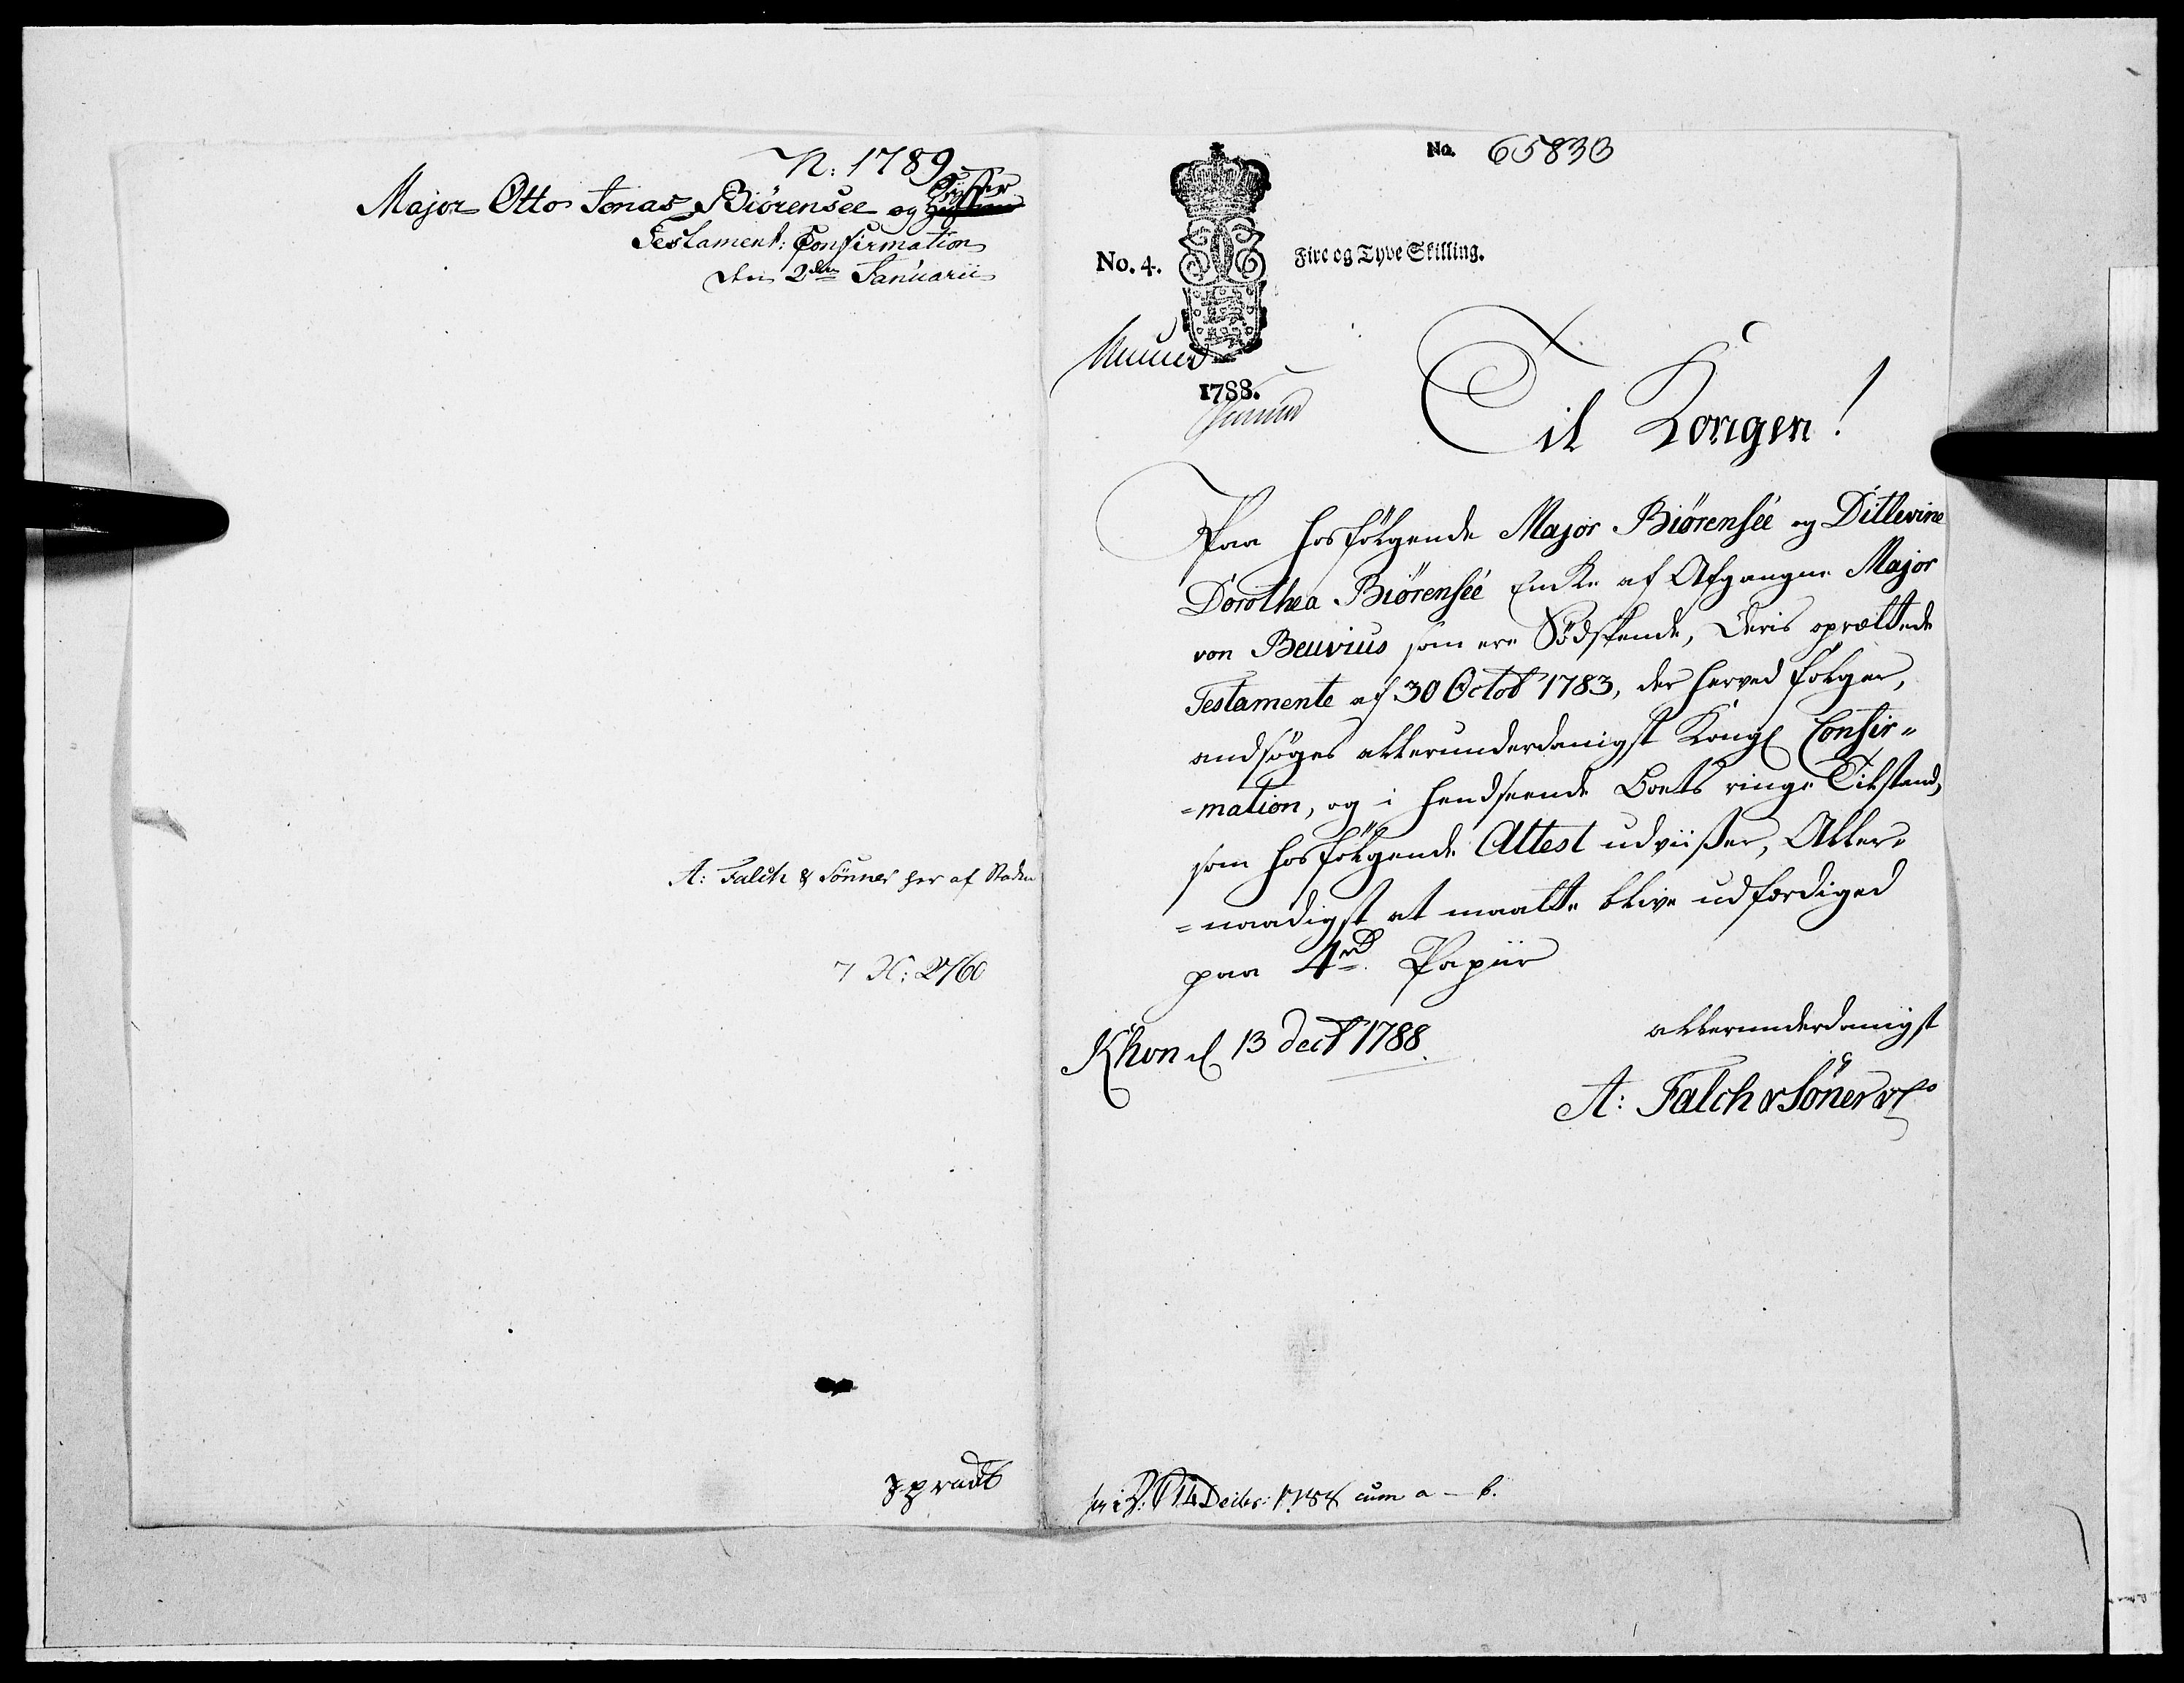 N: 1789
Major Otto Jonas Biörensee og Syster
Testament: Confirmation
den 2den Januarii
A: Falch & Sönner her af Staden
7 N: 2760
No. 65833
No. 4.
Fire og Tyve Skilling.
1788.
Til Kongen!
Paa hosfölgende Major Biörensée og Ditlevine
Dorothea Biörensée Encke af Afgangne Major
von Beuvius som ere Södskende, Deris oprættede
Testamente af 30 Octob 1783, der herved fölger,
andsöges allerunderdanigst Kongl Confir=
=mation, og i hendseende Boets ringe Tilstand,
som hosfölgende Attest udviißer, Aller=
=naadigst at maatte blive udfærdiged
paa 4rd. Papiir
Khvn d 13 decb 1788
allerunderdanigst
A: Falch & Söner
14 Decbr: 1788 cum a - b.